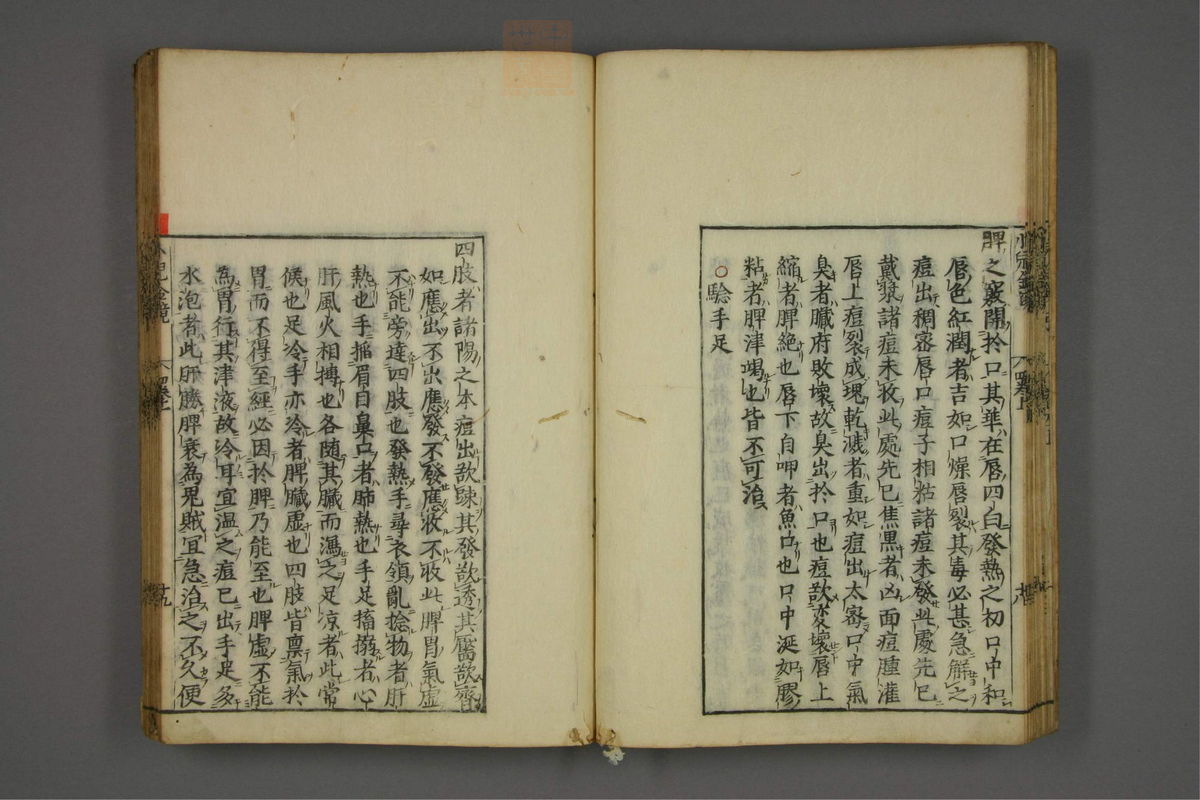 脾之竅開於口其華在唇四白發熱之初口中和
唇色紅潤者吉如口燥唇裂其毒必甚急解之
痘出稠密唇口痘子相粘諸痘未發此處先已
戴漿諸痘未收此處先已焦黒者凶面痘腫灌
唇上痘裂成塊乾濺者重如痘出太密口中氣
臭者臟府敗壞故臭出於口也痘欲変壞唇上
縮者脾絶也唇下自呷者魚口也口中涎如膠
粘者脾津竭也皆不可治
○驗手足
四肢者諸陽之本痘出欲踈其發欲透其靨欲齊
如應出不出應發不發應收不收此脾胃氣虚
不能旁達四肢也發熱手尋衣領亂捻物者肝
熱也手掐眉目鼻口者肺熱也手足搐搦者心
肝風火相搏也各随其臟而瀉之足凉者此常
候也足冷手亦冷者脾臟虚也四肢皆禀氣於
胃而不得至經必因於脾乃能至也脾虚不能
為胃行其津液故冷耳宜温之痘已出手足多
水泡者此肝勝脾衰為鬼賊宜急治之不久便
小兒金鏡